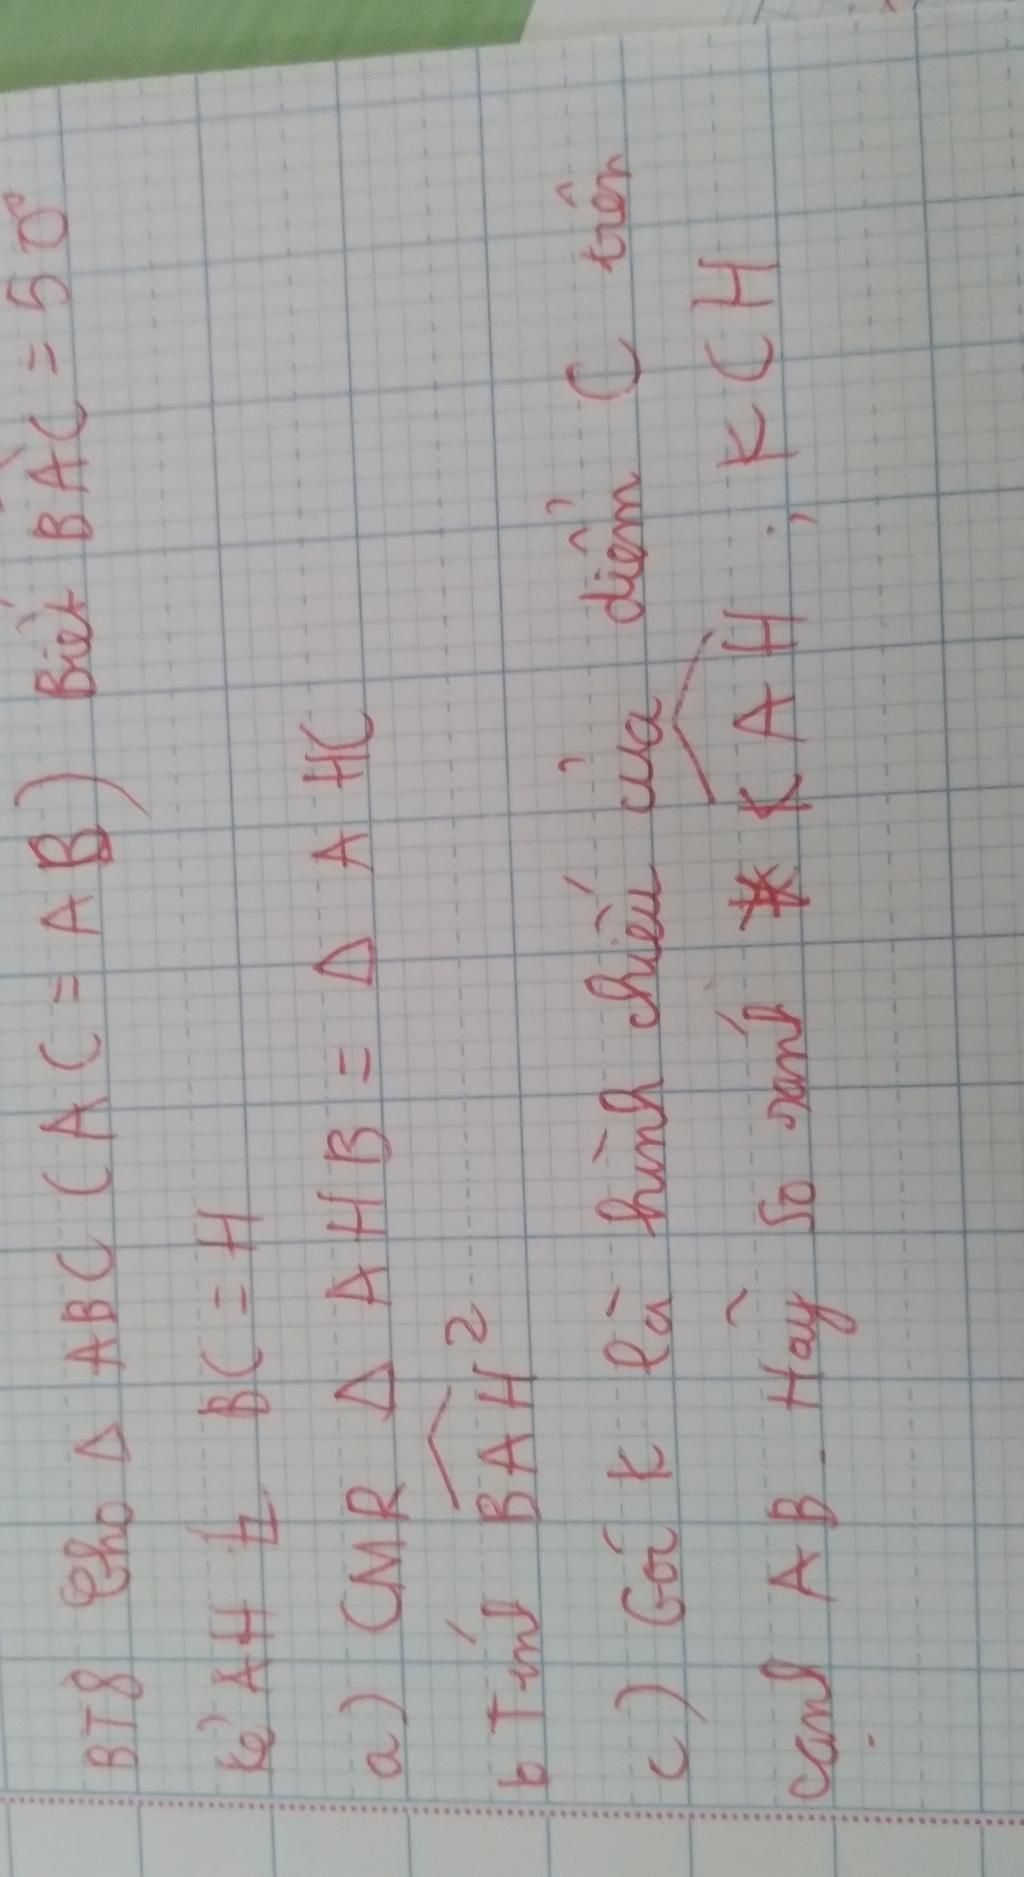 BT8 Cho Δ ABC (AC = AB) Biết BAC = 50°
Kẻ AH ⊥ BC = H
a) CMR Δ AHB = Δ AHC
b Tính BAH ?
c) Gọi K là hình chiếu của điểm C trên
cạnh AB. Hãy so sánh KAH ; KCH